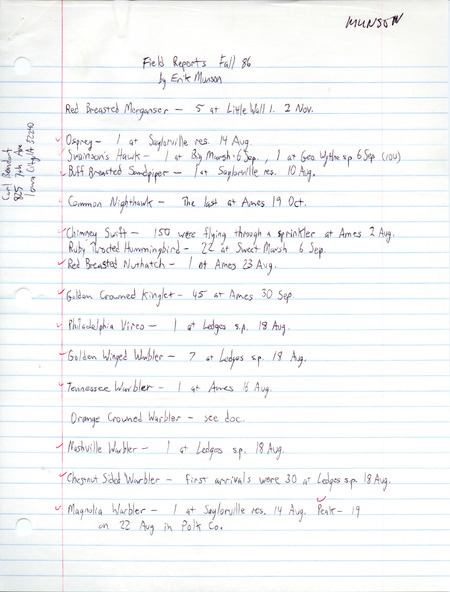 MUNSON
Field Reports Fall 86
by Erik Munson
Red Breasted Merganser - 5 at Little Wall l. 2 Nov.
Osprey - 1 at Saylorville res. 14 Aug.
Swainson's Hawk - 1 at Big Marsh 6 Sep., 1 at Geo. Wythe sp 6 Sep (IOU)
Buff Breasted Sandpiper - 1 at Saylorville res. 10 Aug.
Common Nighthawk - The last at Ames 19 Oct.
Chimney Swift - 150 were flying through a sprinkler at Ames 2 Aug.
Ruby Throted Hummingbird - 22 at Sweet Marsh 6 Sep.
Red Breasted Nuthatch - 1 at Ames 23 Aug.
Golden Crowned Kinglet - 45 at Ames 30 Sep.
Philadelphia Vireo - 1 at Ledges s.p. 18 Aug.
Golden Winged Warbler - 7 at Ledges sp. 18 Aug.
Tennessee Warbler - 1 at Ames 16 Aug.
Orange Crowned Warbler - see doc.
Nashville Warbler - 1 at Ledges s.p. 18 Aug.
Chestnut Sided Warbler - First arrivals were 30 at Ledges s.p. 18 Aug.
Magnolia Warbler - 1 at Saylorville res. 14 Aug. Peak - 19
on 22 Aug in Polk Co.
Carl Bendorf
825 7th Ave
Iowa City IA 52240